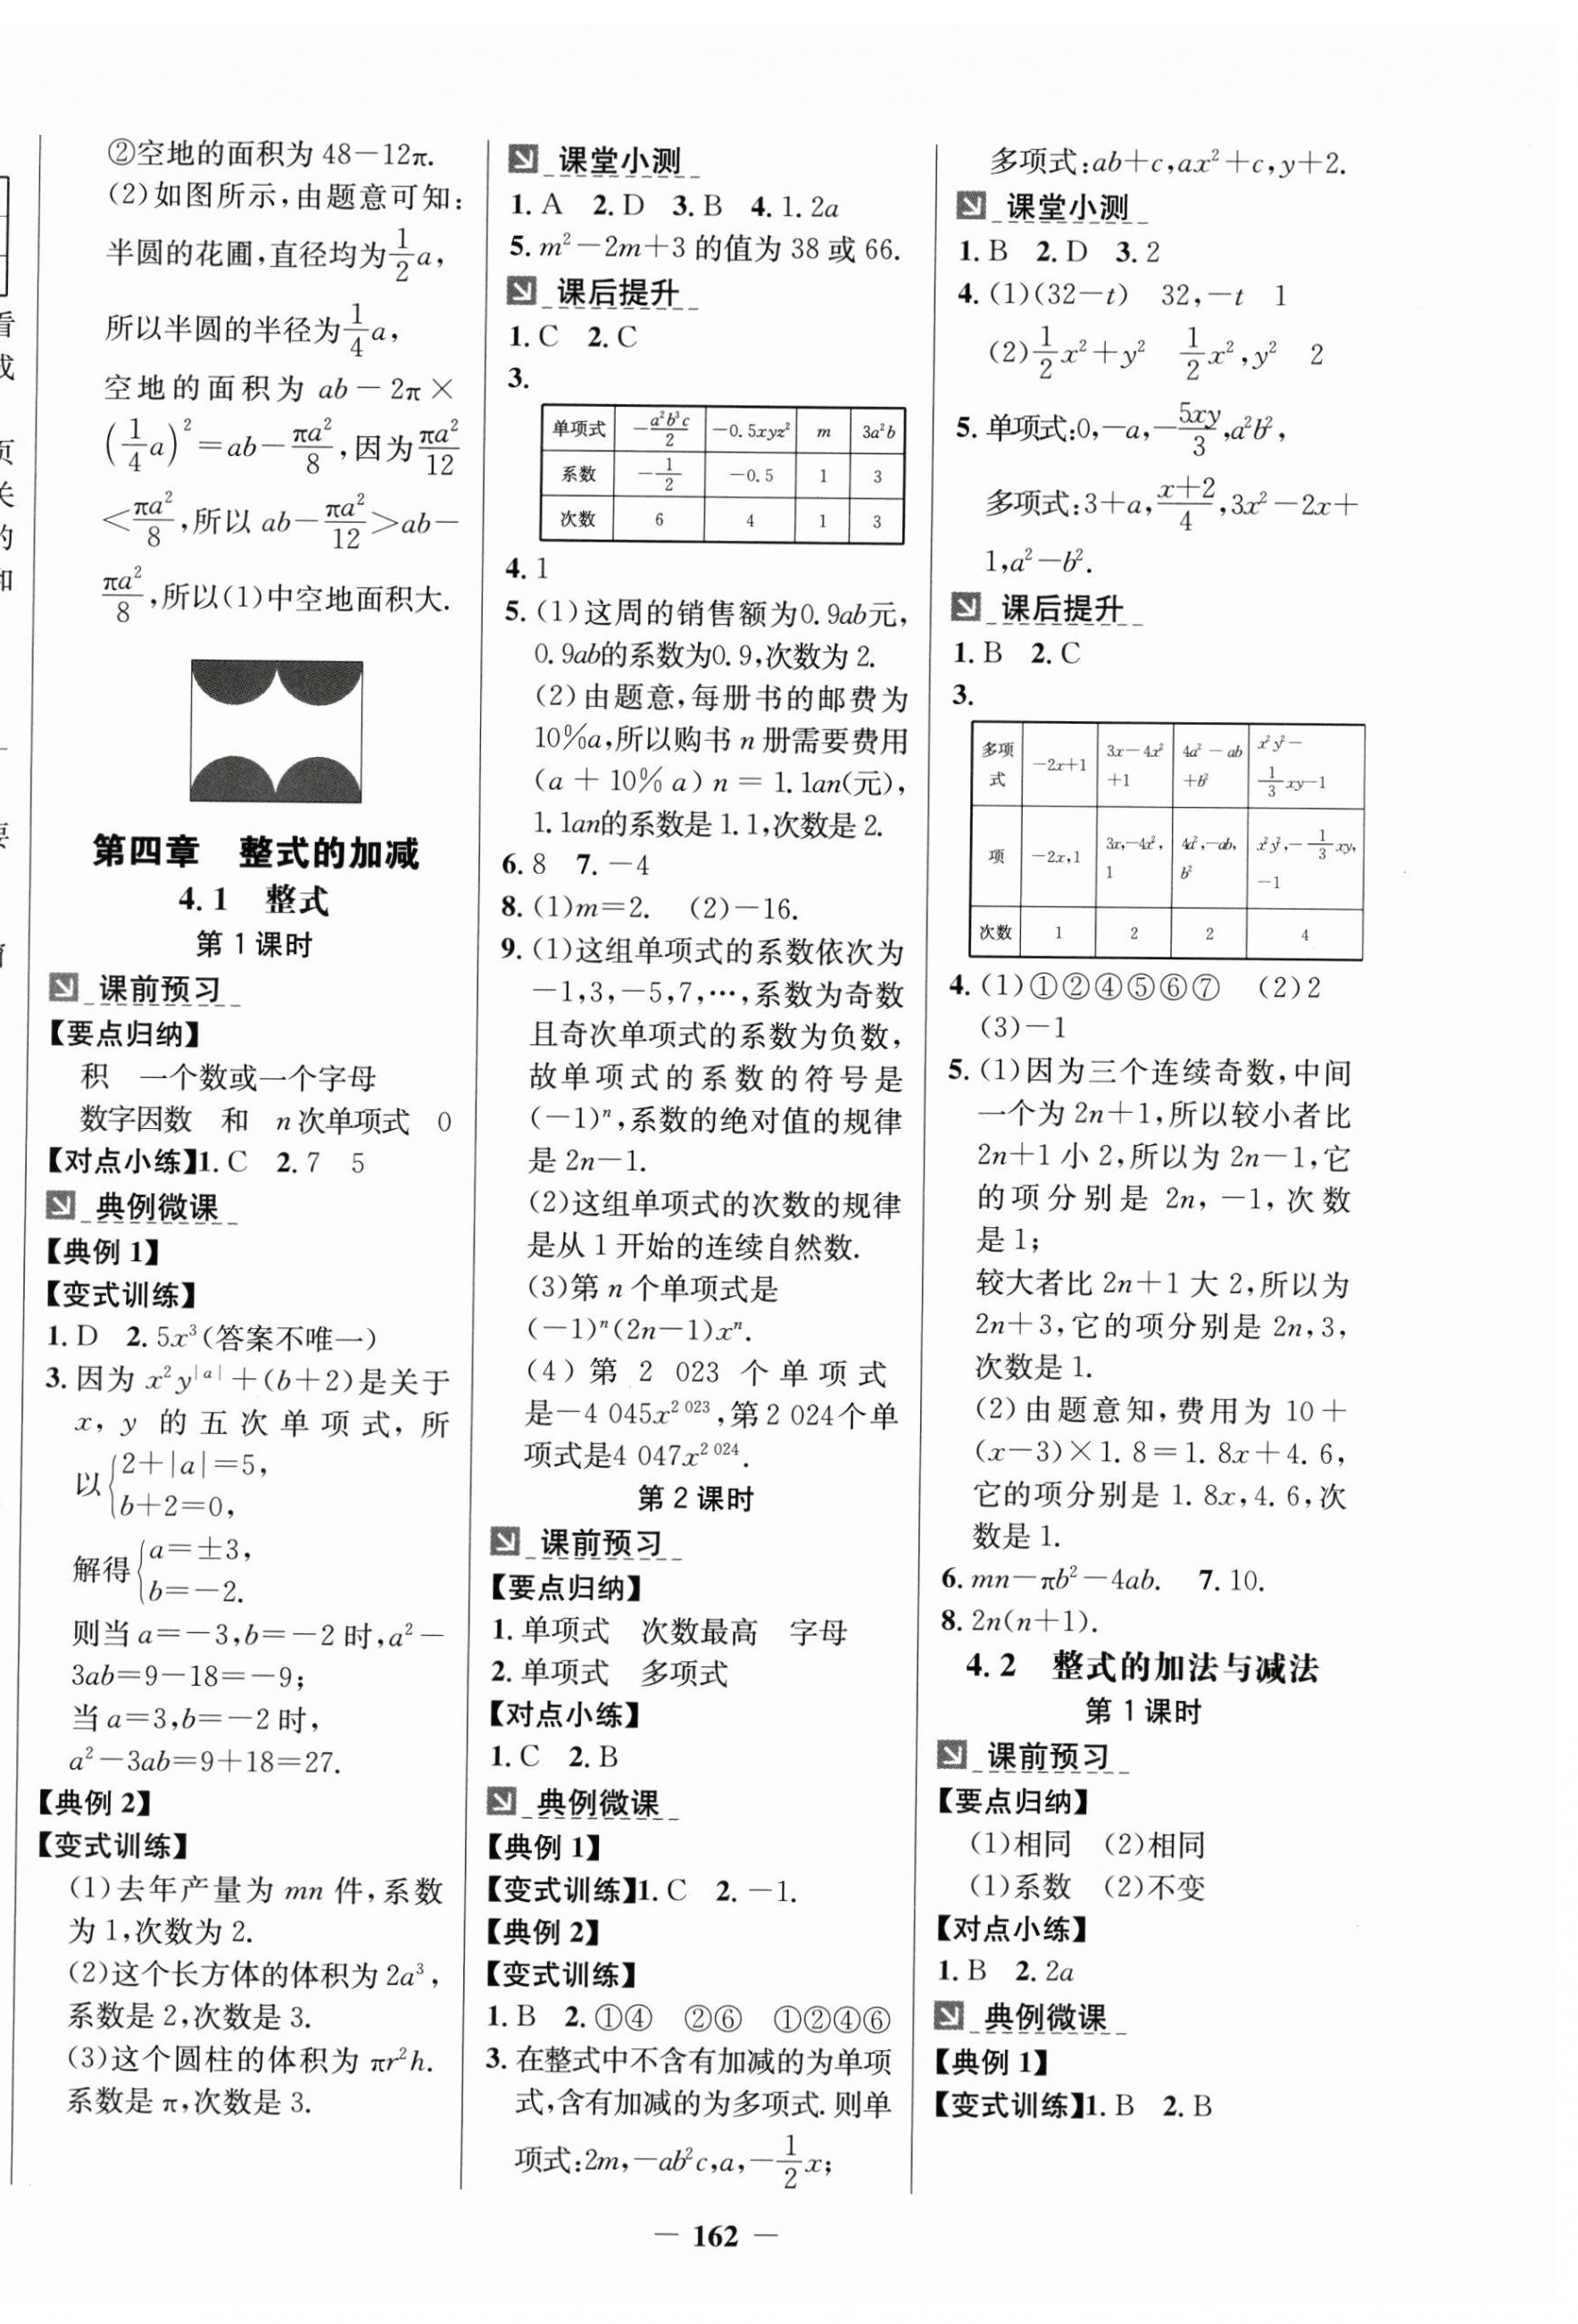 ②空地的面积为 48－12π.
(2)如图所示,由题意可知:
半圆的花圃,直径均为\frac{1}{2}a,
所以半圆的半径为\frac{1}{4}a,
空地的面积为 ab－2π×
(\frac{1}{4}a)²＝ab－\frac{πa²}{8},因为\frac{πa²}{12}
＜\frac{πa²}{8},所以 ab－\frac{πa²}{12}＞ab－
\frac{πa²}{8},所以(1)中空地面积大.
第四章　整式的加减
4.1　整式
第 1 课时
课前预习
【要点归纳】
积　一个数或一个字母
数字因数　和　n次单项式　0
【对点小练】1. C　2. 7　5
典例微课
【典例 1】
【变式训练】
1. D　2. 5x³(答案不唯一)
3. 因为 x²y^{|a|}＋(b＋2)是关于
x, y 的五次单项式, 所
以{2＋|a|＝5,
b＋2＝0,
解得{a＝±3,
b＝－2.
则当 a＝－3,b＝－2 时,a²－
3ab＝9－18＝－9;
当 a＝3,b＝－2 时,
a²－3ab＝9＋18＝27.
【典例 2】
【变式训练】
(1)去年产量为 mn 件,系数
为 1,次数为 2.
(2)这个长方体的体积为 2a³,
系数是 2,次数是 3.
(3)这个圆柱的体积为 πr²h.
系数是 π,次数是 3.
课堂小测
1. A　2. D　3. B　4. 1.2a
5. m²－2m＋3 的值为 38 或 66.
课后提升
1. C　2. C
3.
单项式　－\frac{a²b³c}{2}　－0.5xyz²　m　3a²b
系数　－\frac{1}{2}　－0.5　1　3
次数　6　4　1　3
4. 1
5. (1)这周的销售额为0.9ab元,
0.9ab的系数为0.9,次数为 2.
(2)由题意,每册书的邮费为
10%a,所以购书 n 册需要费用
(a＋10% a) n＝1.1an(元),
1.1an的系数是 1.1,次数是 2.
6. 8　7. －4
8. (1)m＝2.　(2)－16.
9. (1)这组单项式的系数依次为
－1,3,－5,7,…,系数为奇数
且奇次单项式的系数为负数,
故单项式的系数的符号是
(－1)ⁿ,系数的绝对值的规律
是 2n－1.
(2)这组单项式的次数的规律
是从 1 开始的连续自然数.
(3)第 n 个单项式是
(－1)ⁿ(2n－1)xⁿ.
(4)第 2 023 个单项式
是－4 045x^{2 023},第2 024个单
项式是4 047x^{2 024}.
第 2 课时
课前预习
【要点归纳】
1. 单项式　次数最高　字母
2. 单项式　多项式
【对点小练】
1. C　2. B
典例微课
【典例 1】
【变式训练】1. C　2. －1.
【典例 2】
【变式训练】
1. B　2. ①④　②⑥　①②④⑥
3. 在整式中不含有加减的为单项
式,含有加减的为多项式. 则单
项式:2m,－ab²c,a,－\frac{1}{2}x;
多项式:ab＋c,ax²＋c,y＋2.
课堂小测
1. B　2. D　3. 2
4. (1)(32－t)　32,－t　1
(2)\frac{1}{2}x²＋y²　\frac{1}{2}x²,y²　2
5. 单项式:0,－a,－\frac{5xy}{3},a²b²,
多项式:3＋a,\frac{x＋2}{4},3x²－2x＋
1,a²－b².
课后提升
1. B　2. C
3.
多项式　－2x＋1　3x－4x²＋1　4a²－ab＋b²　x²y²－\frac{1}{3}xy－1
项　－2x,1　3x,－4x²,1　4a²,－ab,b²　x²y²,－\frac{1}{3}xy,－1
次数　1　2　2　4
4. (1)①②④⑤⑥⑦　(2)2
(3)－1
5. (1)因为三个连续奇数,中间
一个为 2n＋1,所以较小者比
2n＋1 小 2,所以为 2n－1,它
的项分别是 2n,－1,次数
是 1;
较大者比 2n＋1 大 2,所以为
2n＋3,它的项分别是 2n,3,
次数是 1.
(2)由题意知,费用为 10＋
(x－3)×1.8＝1.8x＋4.6,
它的项分别是 1.8x,4.6,次
数是 1.
6. mn－πb²－4ab.　7. 10.
8. 2n(n＋1).
4.2　整式的加法与减法
第 1 课时
课前预习
【要点归纳】
(1)相同　(2)相同
(1)系数　(2)不变
【对点小练】
1. B　2. 2a
典例微课
【典例 1】
【变式训练】1. B　2. B
— 162 —